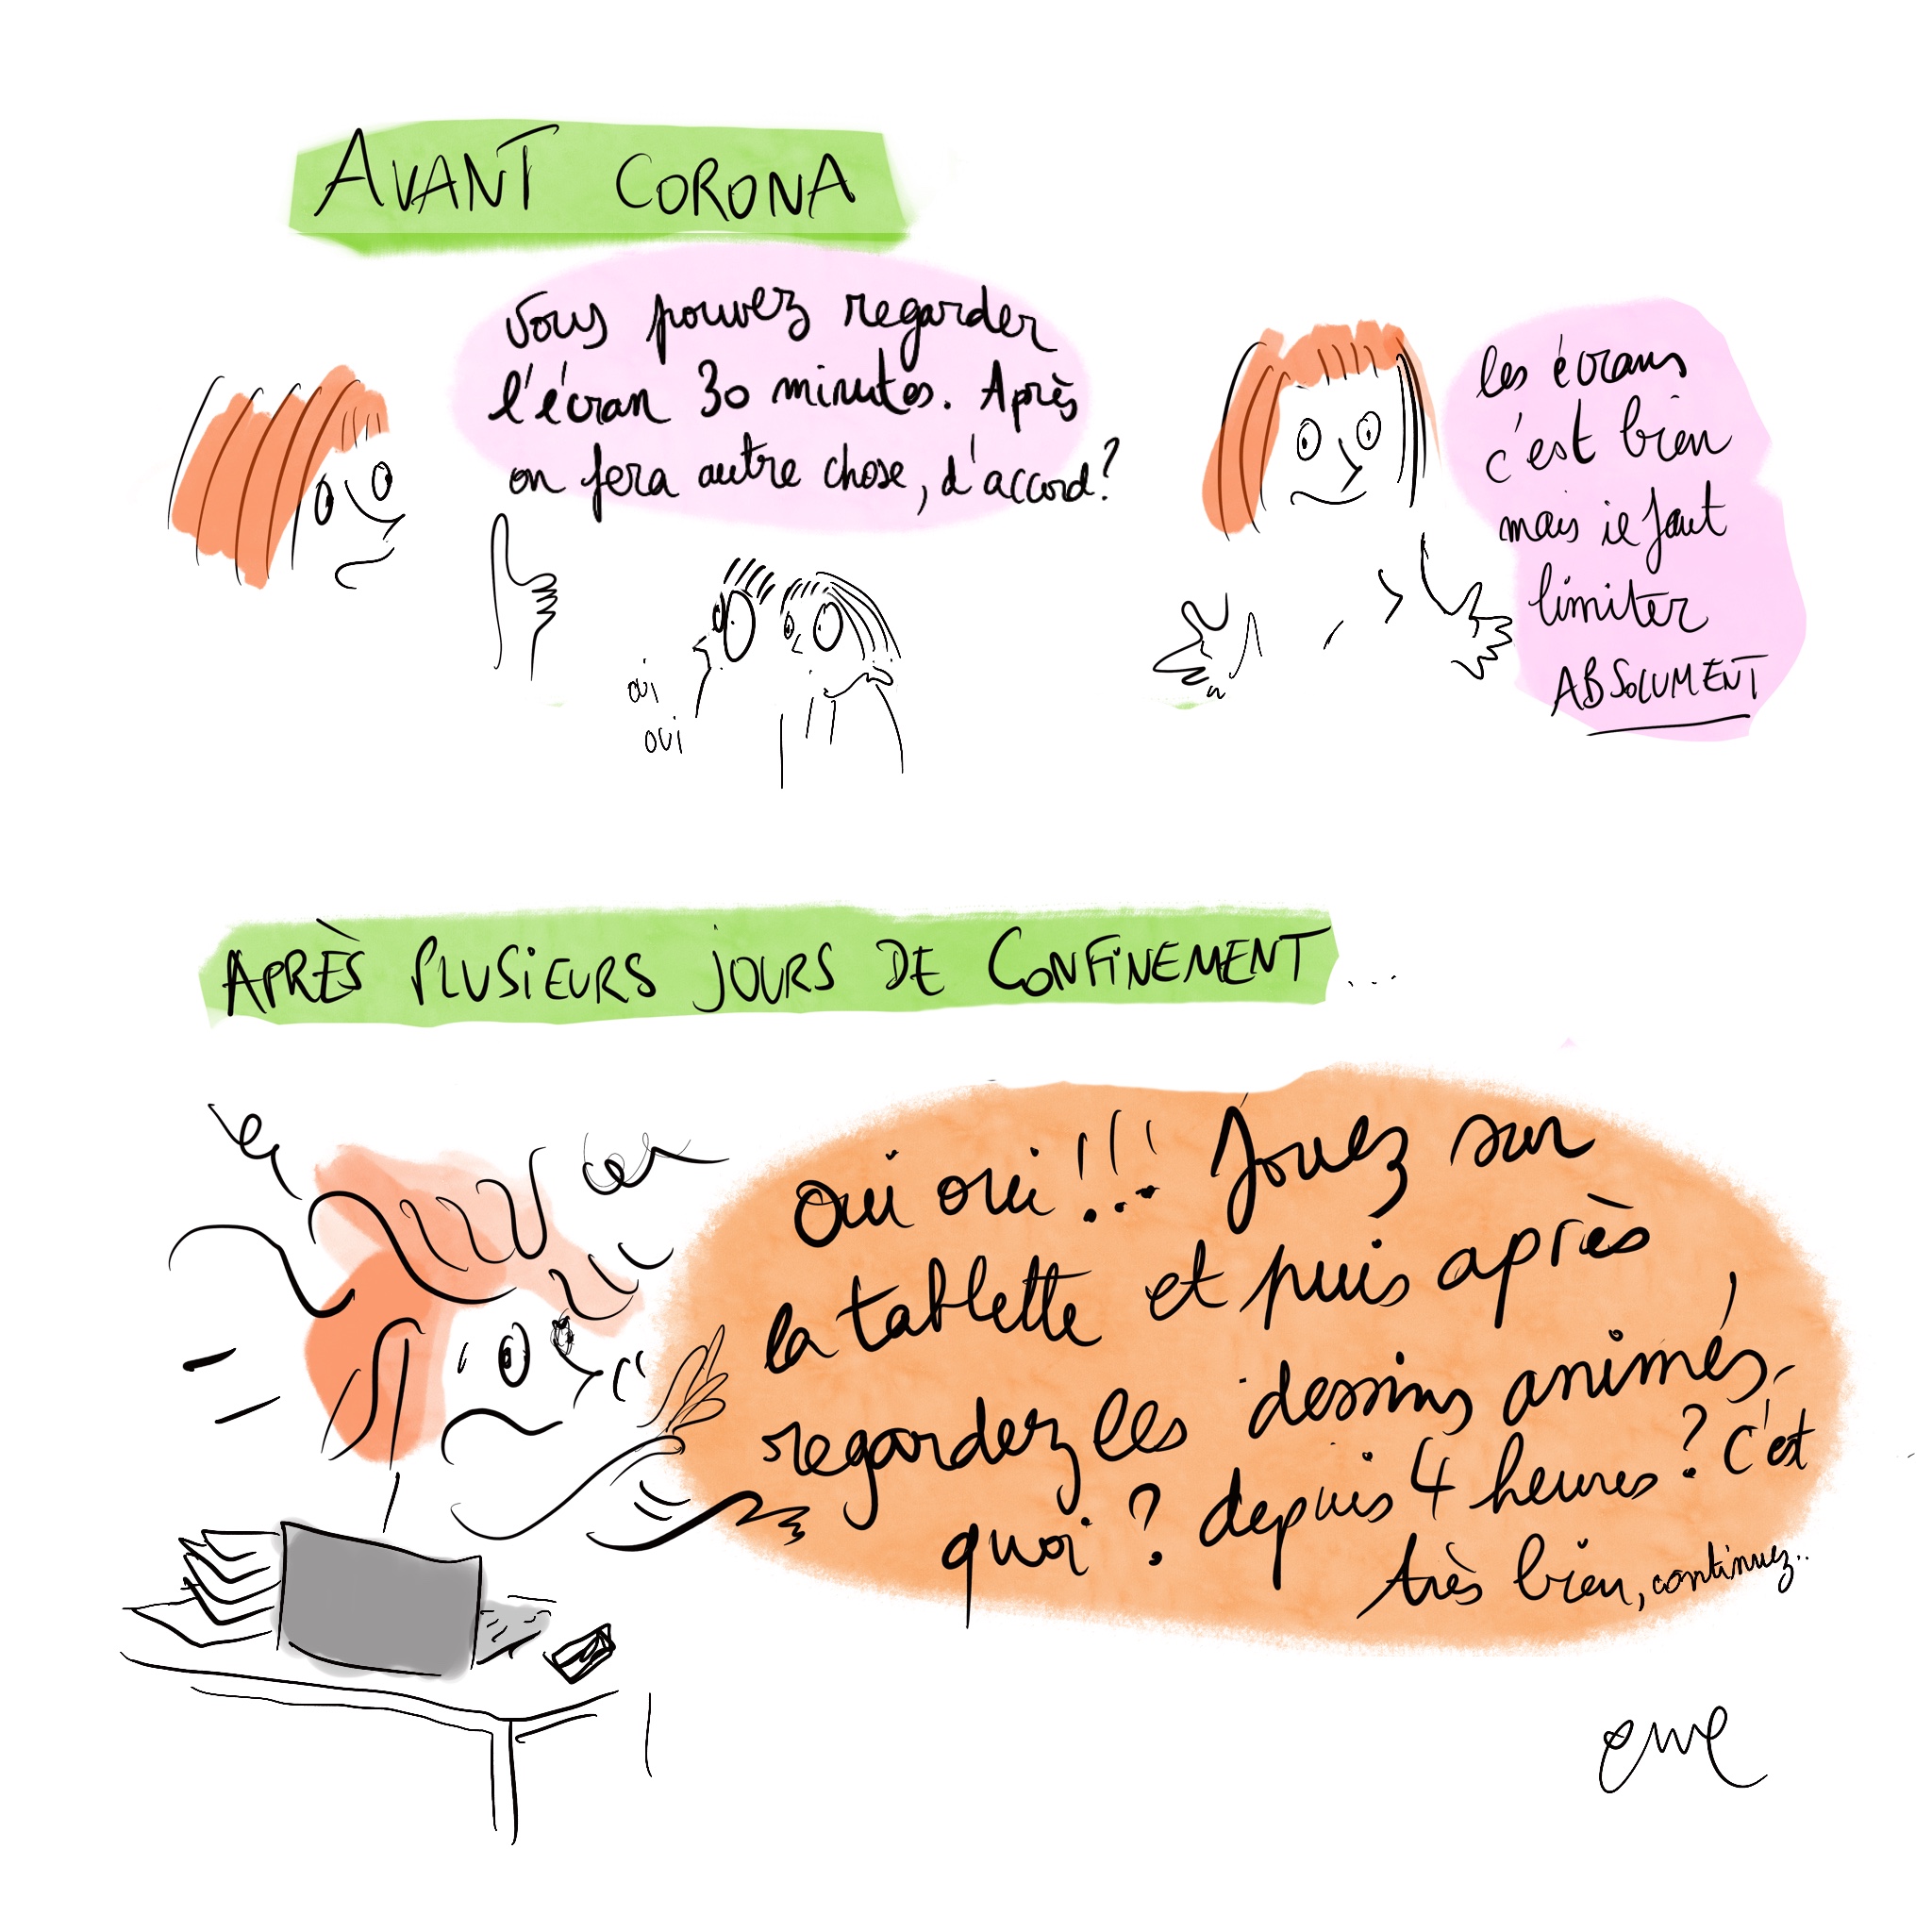 AVANT CORONA
Vous pouvez regarder
l'écran 30 minutes. Après
on fera autre chose, d'accord?
oui
oui
les écrans
c'est bien
mais il faut
limiter
ABSOLUMENT
APRÈS PLUSIEURS JOURS DE CONFINEMENT...
oui oui!!! Jouez sur
la tablette et puis après
regardez les dessins animés,
quoi? depuis 4 heures? C'est
très bien, continuez..